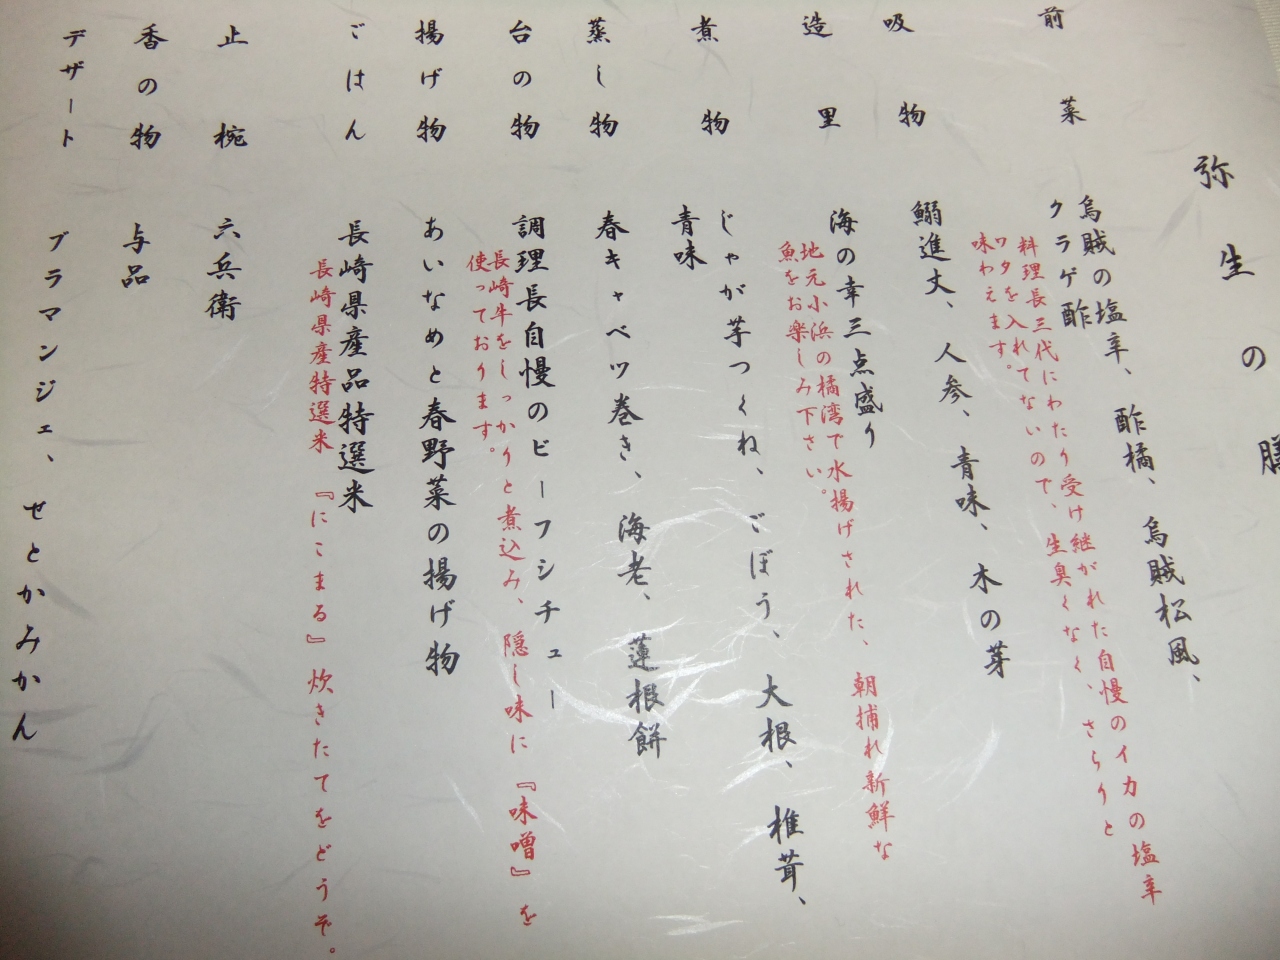 弥生の膳
前菜
烏賊の塩辛、酢橘、烏賊松風、
クラゲ酢
料理長三代にわたり受け継がれた自慢のイカの塩辛
ワタを入れてないので、生臭くなく、さらりと
味わえます。
吸物
鰯進丈、人参、青味、木の芽
造里
海の幸三点盛り
地元小浜の橘湾で水揚げされた、朝捕れ新鮮な
魚をお楽しみ下さい。
煮物
じゃが芋つくね、ごぼう、大根、椎茸、
青味
蒸し物
春キャベツ巻き、海老、蓮根餅
台の物
調理長自慢のビーフシチュー
長崎牛をしっかりと煮込み、隠し味に『味噌』を
使っております。
揚げ物
あいなめと春野菜の揚げ物
ごはん
長崎県産品特選米
長崎県産特選米『にこまる』炊きたてをどうぞ。
止椀
六兵衛
香の物
与品
デザート
ブラマンジェ、せとかみかん